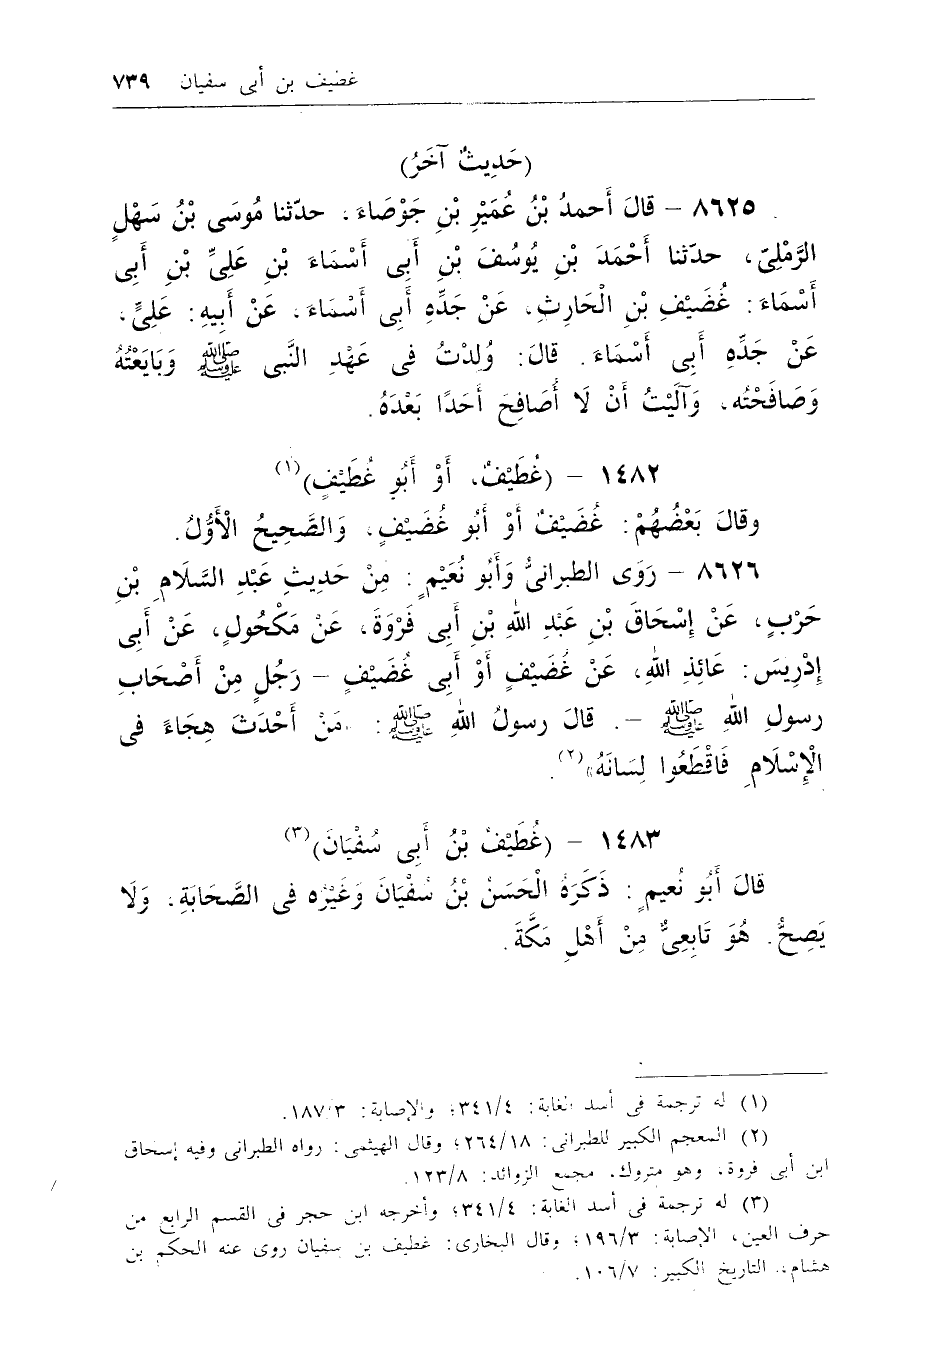 غضيف بن أبى سفيان ٧٣٩
(حَدِيثٌ آخَرُ)
٨٦٢٥ – قالَ أَحمدُ بْنُ عُمَيْرِ بْنِ جَوْصَاءَ، حدّثنا مُوسَى بْنُ سَهْلٍ
الرَّمْلِىّ، حدّثنا أَحْمَدَ بْنِ يُوسُفَ بْنِ أَبِى أَسْمَاءَ بْنِ عَلِىِّ بْنِ أَبِى
أَسْمَاءَ: غُضَيْفِ بْنِ الْحَارِثِ، عَنْ جَدِّهِ أَبِى أَسْمَاءَ، عَنْ أَبِيهِ: عَلِىٍّ،
عَنْ جَدِّهِ أَبِى أَسْمَاءَ. قالَ: وُلِدْتُ فى عَهْدِ النَّبى ﷺ وَبَايَعْتُهُ
وَصَافَحْتُه، وَآلَيْتُ أَنْ لَا أُصَافِحَ أَحَدًا بَعْدَهُ.
١٤٨٢ – (غُطَيْفٌ، أَوْ أَبُو غُطَيْفٍ)(١)
وقالَ بَعْضُهُمْ: غُضَيْفٌ أَوْ أَبُو غُضَيْفٍ، وَالصَّحِيحُ الْأَوَّلُ.
٨٦٢٦ – رَوَى الطبرانىُّ وَأَبُو نُعَيْمٍ: مِنْ حَدِيثِ عَبْدِ السَّلَامِ بْنِ
حَرْبٍ، عَنْ إِسْحَاقَ بْنِ عَبْدِ اللهِ بْنِ أَبِى فَرْوَةَ، عَنْ مَكْحُولٍ، عَنْ أَبِى
إِدْرِيسَ: عَائِذِ اللهِ، عَنْ غُضَيْفٍ أَوْ أَبِى غُضَيْفٍ – رَجُلٍ مِنْ أَصْحَابِ
رسولِ اللهِ ﷺ –. قالَ رسولُ اللهِ ﷺ: «مَنْ أَحْدَثَ هِجَاءً فى
الْإِسْلَامِ فَاقْطَعُوا لِسَانَهُ»(٢).
١٤٨٣ – (غُطَيْفُ بْنُ أَبِى سُفْيَانَ)(٣)
قالَ أَبُو نُعيمٍ: ذَكَرَهُ الْحَسَنُ بْنُ سُفْيَانَ وَغَيْرُه فى الصَّحَابَةِ، وَلَا
يَصِحُّ. هُوَ تَابِعِىٌّ مِنْ أَهْلِ مَكَّةَ.
(١) له ترجمة فى أسد الغابة: ٣٤١/٤؛ والإصابة: ١٨٧/٣.
(٢) المعجم الكبير للطبرانى: ٢٦٤/١٨؛ وقال الهيثمى: رواه الطبرانى وفيه إسحاق
ابن أبى فروة، وهو متروك. مجمع الزوائد: ١٢٣/٨.
(٣) له ترجمة فى أسد الغابة: ٣٤١/٤؛ وأخرجه ابن حجر فى القسم الرابع من
حرف العين، الإصابة: ١٩٦/٣؛ وقال البخارى: غطيف بن سفيان روى عنه الحكم بن
هشام، التاريخ الكبير: ١٠٦/٧.